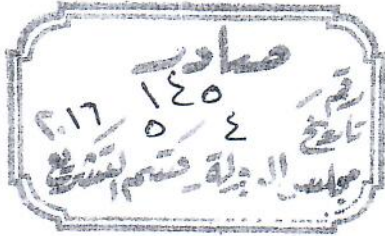 صادر
رقم ١٤٥
تاريخ ٤ ٥ ٢٠١٦
مجلس الدولة قسم التشريع